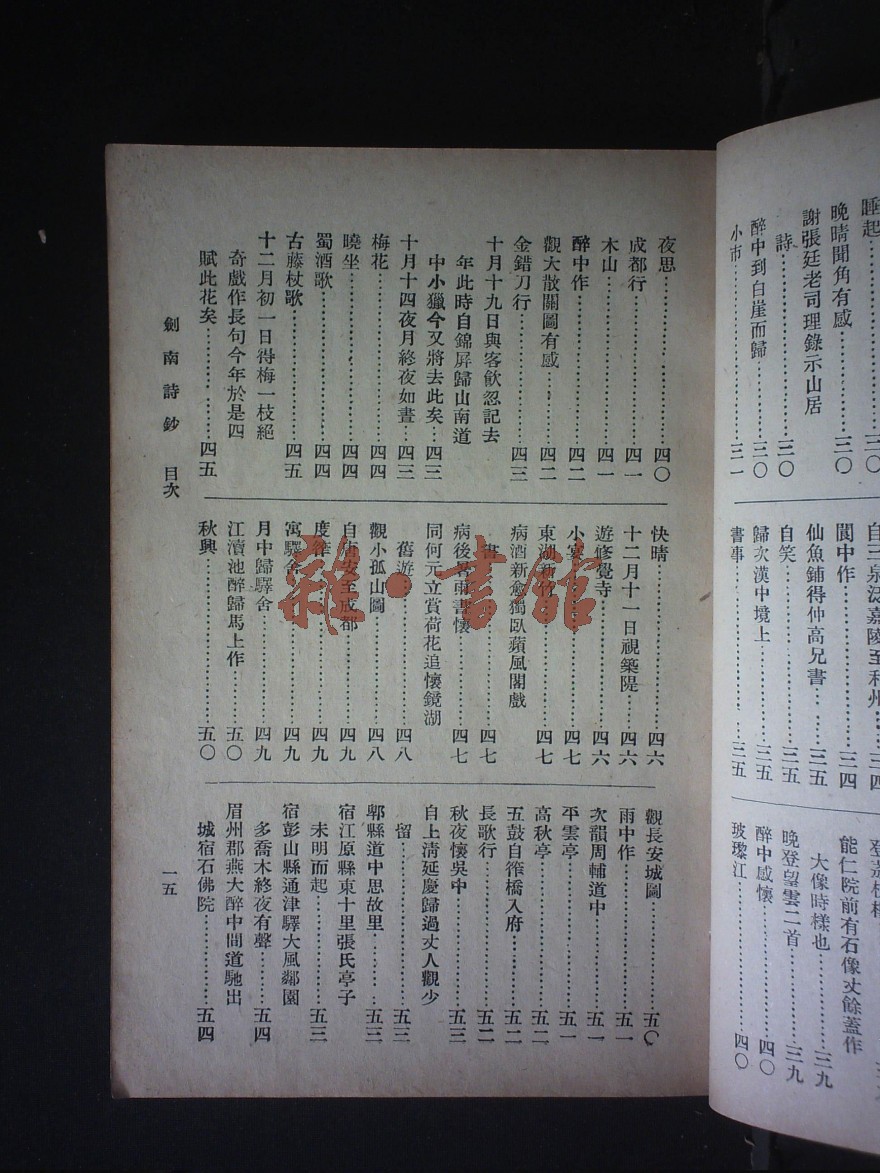 睡起…………三〇
晚晴聞角有感……三〇
謝張廷老司理錄示山居
詩……………三〇
醉中到白崖而歸……三〇
小市……………三一
自三泉泛嘉陵至利州…三四
閬中作…………三四
仙魚鋪得仲高兄書…三五
自笑……………三五
歸次漢中境上………三五
書事……………三五
能仁院前有石像丈餘蓋作
大像時樣也………三九
晚登望雲二首………三九
醉中感懷…………四〇
玻瓈江……………四〇
夜思……………四〇
成都行……………四一
木山……………四一
醉中作……………四二
觀大散關圖有感……四二
金錯刀行…………四三
十月十九日與客飲忽記去
年此時自錦屏歸山南道
中小獵今又將去此矣…四三
十月十四夜月終夜如晝…四三
梅花……………四四
曉坐……………四四
蜀酒歌……………四四
古藤杖歌…………四五
十二月初一日得梅一枝絕
奇戲作長句今年於是四
賦此花矣…………四五
快晴……………四六
十二月十一日視築隄…四六
遊修覺寺…………四六
小宴……………四七
東湖新竹…………四七
病酒新愈獨臥蘋風閣戲
書……………四七
病後暑雨書懷………四七
同何元立賞荷花追懷鏡湖
舊遊……………四八
觀小孤山圖…………四八
自唐安至成都………四九
度筰……………四九
寓驛舍……………四九
月中歸驛舍…………四九
江瀆池醉歸馬上作……五〇
秋興……………五〇
觀長安城圖…………五〇
雨中作……………五一
次韻周輔道中………五一
平雲亭……………五一
高秋亭……………五二
五鼓自筰橋入府……五二
長歌行……………五二
秋夜懷吳中…………五三
自上清延慶歸過丈人觀少
留……………五三
郫縣道中思故里……五三
宿江原縣東十里張氏亭子
未明而起…………五三
宿彭山縣通津驛大風鄰園
多喬木終夜有聲……五四
眉州郡燕大醉中間道馳出
城宿石佛院………五四
劍南詩鈔 目次
一五
雜·書館